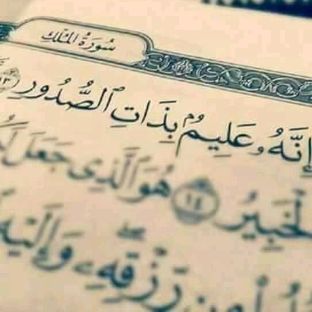 سُورَةُ المُلْكِ
إِنَّهُۥ عَلِيمٌۢ بِذَاتِ ٱلصُّدُورِ ١٣
ٱلْخَبِيرُ ١٤ هُوَ ٱلَّذِى جَعَلَ
مِن رِّزْقِهِۦ وَإِلَيْهِ